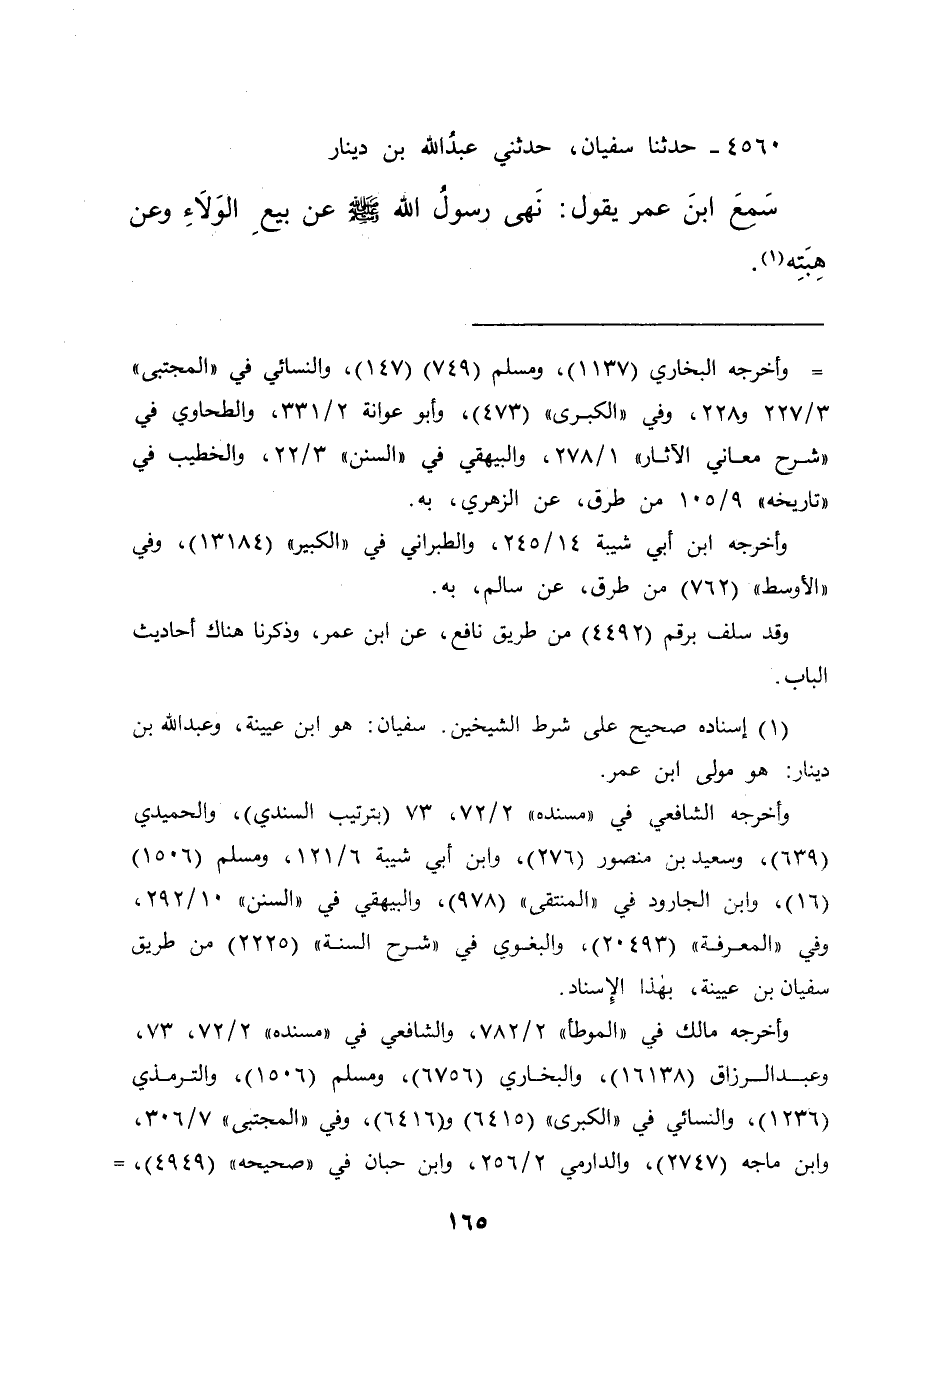 ٤٥٦٠ ـ حدثنا سفيان، حدثني عبدُالله بن دينار
سَمِعَ ابنَ عمر يقول: نَهى رسولُ الله ﷺ عن بيعِ الوَلَاءِ وعن
هِبَتِه(١).
= وأخرجه البخاري (١١٣٧)، ومسلم (٧٤٩) (١٤٧)، والنسائي في «المجتبى»
٢٢٧/٣ و٢٢٨، وفي «الكبرى» (٤٧٣)، وأبو عوانة ٣٣١/٢، والطحاوي في
«شرح معاني الآثار» ٢٧٨/١، والبيهقي في «السنن» ٢٢/٣، والخطيب في
«تاريخه» ١٠٥/٩ من طرق، عن الزهري، به.
وأخرجه ابن أبي شيبة ٢٤٥/١٤، والطبراني في «الكبير» (١٣١٨٤)، وفي
«الأوسط» (٧٦٢) من طرق، عن سالم، به.
وقد سلف برقم (٤٤٩٢) من طريق نافع، عن ابن عمر، وذكرنا هناك أحاديث
الباب.
(١) إسناده صحيح على شرط الشيخين. سفيان: هو ابن عيينة، وعبدالله بن
دينار: هو مولى ابن عمر.
وأخرجه الشافعي في «مسنده» ٧٢/٢، ٧٣ (بترتيب السندي)، والحميدي
(٦٣٩)، وسعيد بن منصور (٢٧٦)، وابن أبي شيبة ١٢١/٦، ومسلم (١٥٠٦)
(١٦)، وابن الجارود في «المنتقى» (٩٧٨)، والبيهقي في «السنن» ٢٩٢/١٠،
وفي «المعرفة» (٢٠٤٩٣)، والبغوي في «شرح السنة» (٢٢٢٥) من طريق
سفيان بن عيينة، بهٰذا الإِسناد.
وأخرجه مالك في «الموطأ» ٧٨٢/٢، والشافعي في «مسنده» ٧٢/٢، ٧٣،
وعبدالرزاق (١٦١٣٨)، والبخاري (٦٧٥٦)، ومسلم (١٥٠٦)، والترمذي
(١٢٣٦)، والنسائي في «الكبرى» (٦٤١٥) و(٦٤١٦)، وفي «المجتبى» ٣٠٦/٧،
وابن ماجه (٢٧٤٧)، والدارمي ٢٥٦/٢، وابن حبان في «صحيحه» (٤٩٤٩)، =
١٦٥